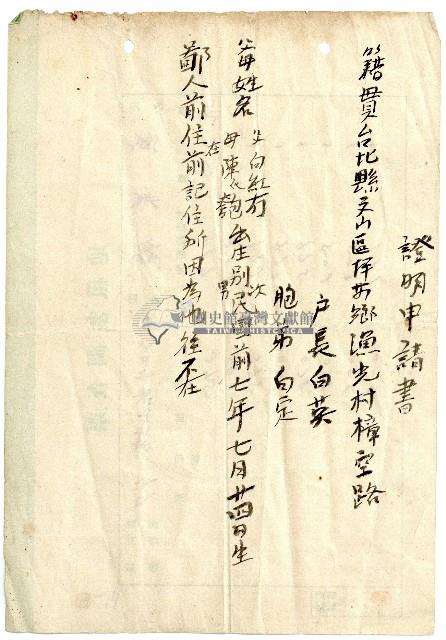 證明申請書
籍貫台北縣文山區坪林鄉漁光村樟空路
戶長白英
胞弟白定
父母姓名 父白紅冇 母陳氏匏 出生別次男 民國前七年七月廿四日生
鄙人前住在前記住所因為他徙不在
國史館臺灣文獻館
TAIWAN HISTORICA